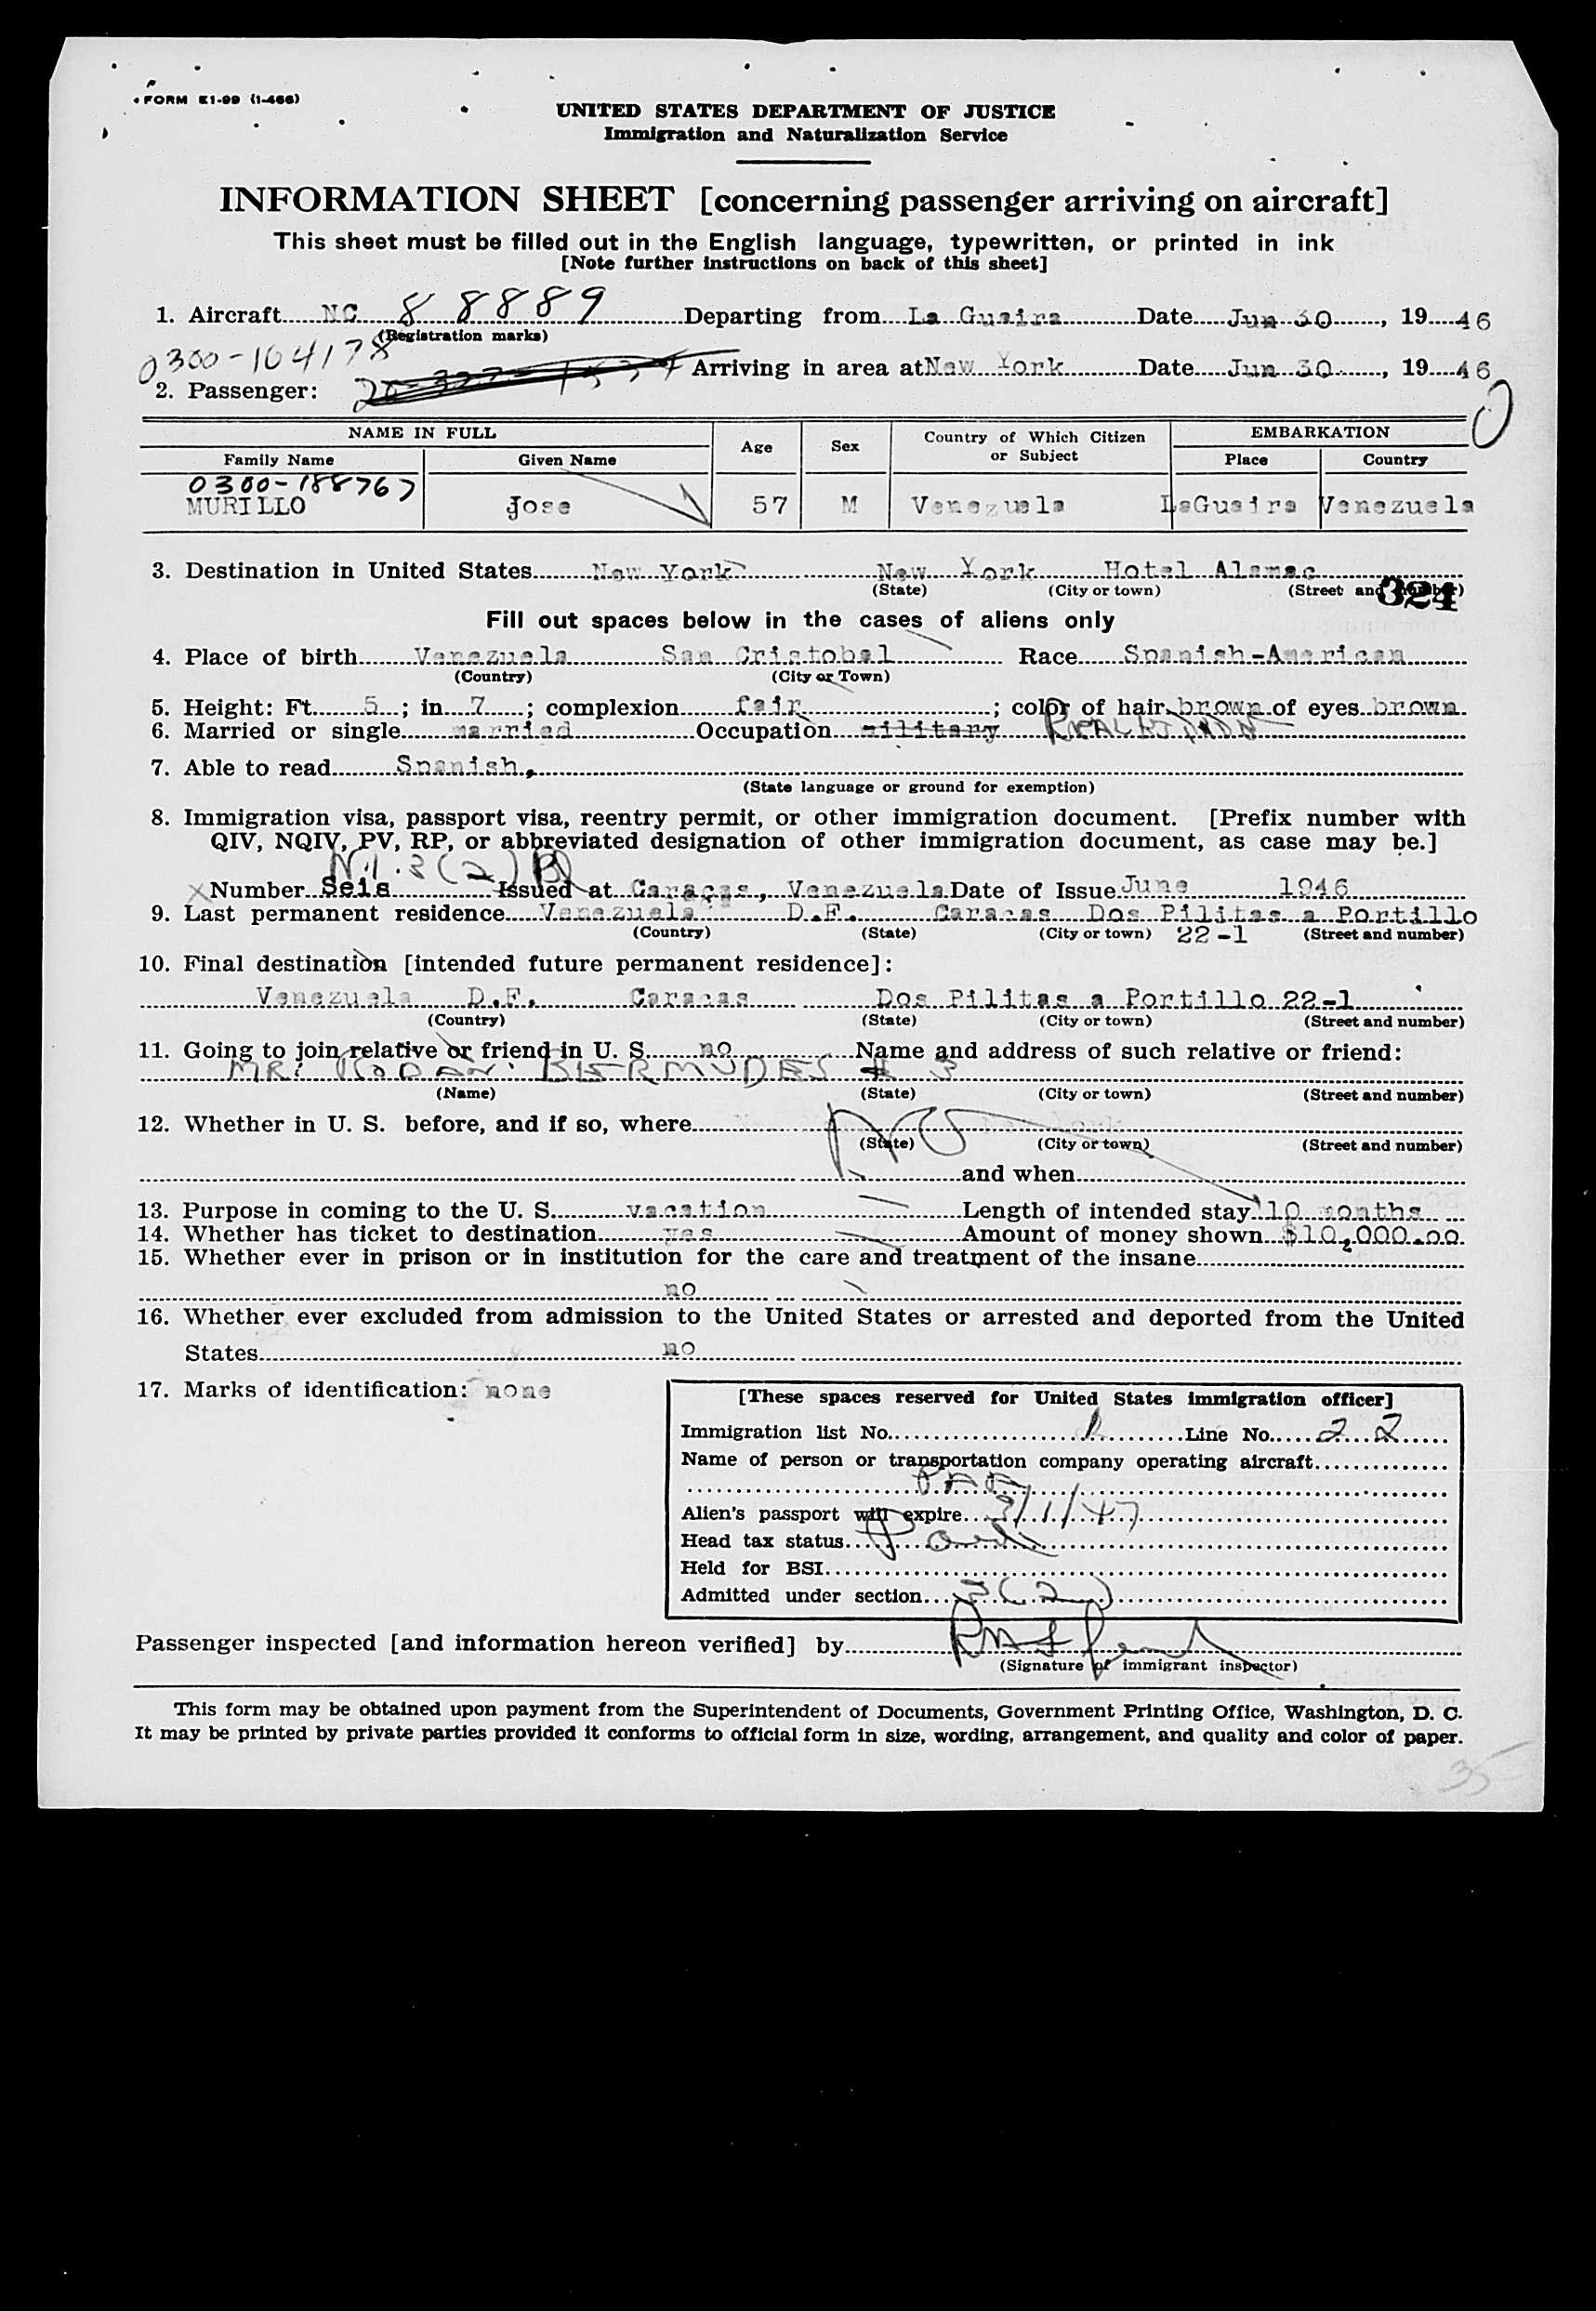 FORM E1-99 (1-466)
UNITED STATES DEPARTMENT OF JUSTICE
Immigration and Naturalization Service
INFORMATION SHEET [concerning passenger arriving on aircraft]
This sheet must be filled out in the English language, typewritten, or printed in ink
[Note further instructions on back of this sheet]
1. Aircraft NC 88889 Departing from La Guaira Date Jun 30, 1946
(Registration marks)
0300-104178
Arriving in area at New York Date Jun 30, 1946
2. Passenger:
NAME IN FULL Age Sex Country of Which Citizen or Subject EMBARKATION
Family Name Given Name Place Country
0300-188767
MURILLO Jose 57 M Venezuela LaGuaira Venezuela
3. Destination in United States New York New York Hotel Alamac
(State) (City or town) (Street and number)
324
Fill out spaces below in the cases of aliens only
4. Place of birth Venezuela San Cristobal Race Spanish-American
(Country) (City or Town)
5. Height: Ft. 5; in. 7; complexion fair; color of hair brown of eyes brown
6. Married or single married Occupation military
7. Able to read Spanish,
(State language or ground for exemption)
8. Immigration visa, passport visa, reentry permit, or other immigration document. [Prefix number with
QIV, NQIV, PV, RP, or abbreviated designation of other immigration document, as case may be.]
N.I. 3(2) B)
Number Seis Issued at Caracas, Venezuela Date of Issue June 1946
9. Last permanent residence Venezuela D.F. Caracas Dos Pilitas a Portillo
(Country) (State) (City or town) 22-1 (Street and number)
10. Final destination [intended future permanent residence]:
Venezuela D.F. Caracas Dos Pilitas a Portillo 22-1
(Country) (State) (City or town) (Street and number)
11. Going to join relative or friend in U. S. no Name and address of such relative or friend:
MR. BERMUDES # 3
(Name) (State) (City or town) (Street and number)
12. Whether in U. S. before, and if so, where No
(State) (City or town) (Street and number)
and when
13. Purpose in coming to the U. S. vacation Length of intended stay 10 months
14. Whether has ticket to destination yes Amount of money shown $10,000.00
15. Whether ever in prison or in institution for the care and treatment of the insane
no
16. Whether ever excluded from admission to the United States or arrested and deported from the United
States no
17. Marks of identification: none
[These spaces reserved for United States immigration officer]
Immigration list No. 1 Line No. 22
Name of person or transportation company operating aircraft
PAA
Alien's passport will expire 3/1/47
Head tax status Paid
Held for BSI
Admitted under section 3(2)
Passenger inspected [and information hereon verified] by
(Signature of immigrant inspector)
This form may be obtained upon payment from the Superintendent of Documents, Government Printing Office, Washington, D. C.
It may be printed by private parties provided it conforms to official form in size, wording, arrangement, and quality and color of paper.
35